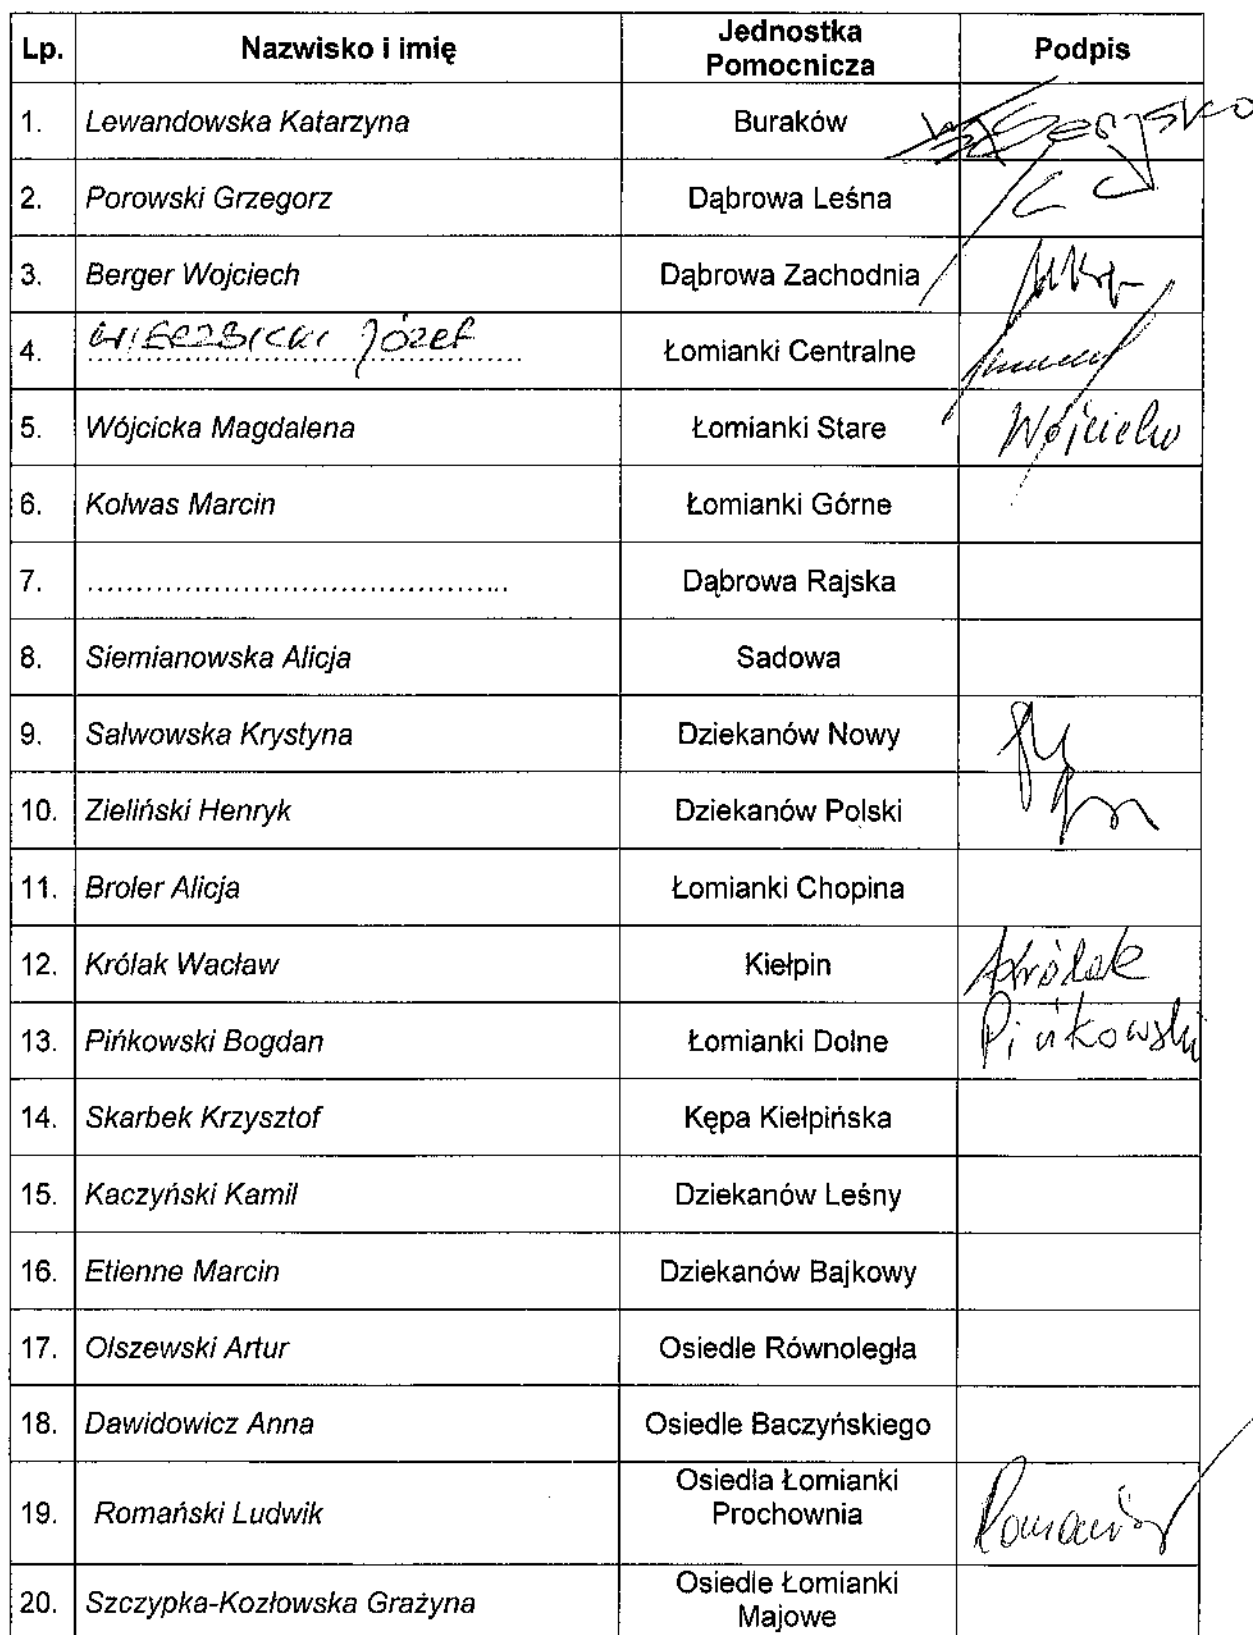 Lp. Nazwisko i imię Jednostka Pomocnicza Podpis
1. Lewandowska Katarzyna Buraków
2. Porowski Grzegorz Dąbrowa Leśna
3. Berger Wojciech Dąbrowa Zachodnia
4. WIERZBICKI JÓZEF Łomianki Centralne
5. Wójcicka Magdalena Łomianki Stare Wójcicka
6. Kolwas Marcin Łomianki Górne
7. ........................................... Dąbrowa Rajska
8. Siemianowska Alicja Sadowa
9. Salwowska Krystyna Dziekanów Nowy
10. Zieliński Henryk Dziekanów Polski
11. Broler Alicja Łomianki Chopina
12. Królak Wacław Kiełpin Królak
13. Pińkowski Bogdan Łomianki Dolne Pińkowski
14. Skarbek Krzysztof Kępa Kiełpińska
15. Kaczyński Kamil Dziekanów Leśny
16. Etienne Marcin Dziekanów Bajkowy
17. Olszewski Artur Osiedle Równoległa
18. Dawidowicz Anna Osiedle Baczyńskiego
19. Romański Ludwik Osiedla Łomianki Prochownia
20. Szczypka-Kozłowska Grażyna Osiedle Łomianki Majowe